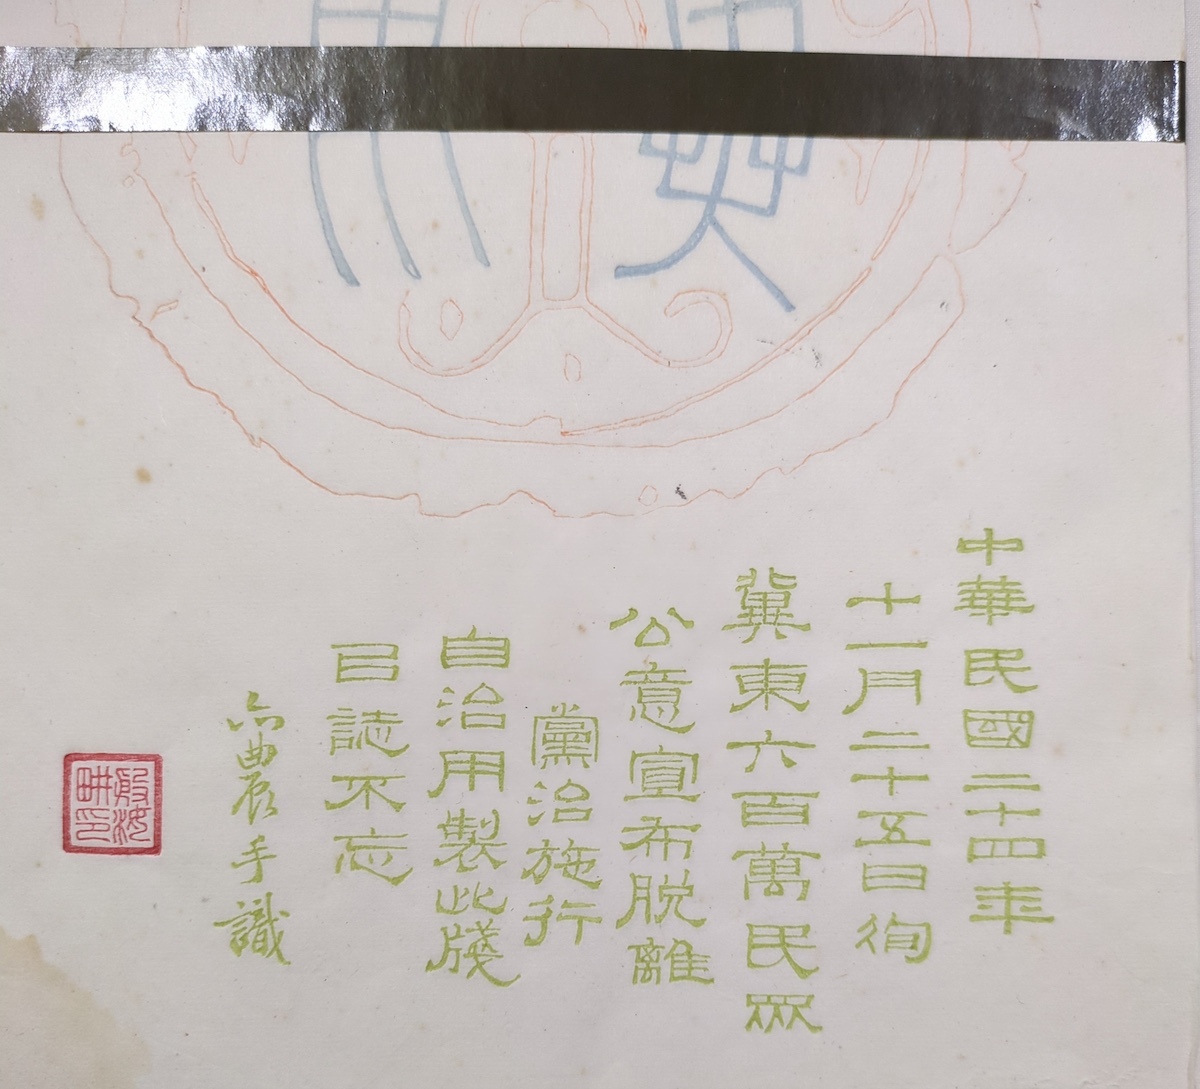 中華民國二十四年
十一月二十五日徇
冀東六百萬民眾
公意宣布脫離
黨治施行
自治用製此牋
㠯誌不忘
亦農手識
殷汝畊印